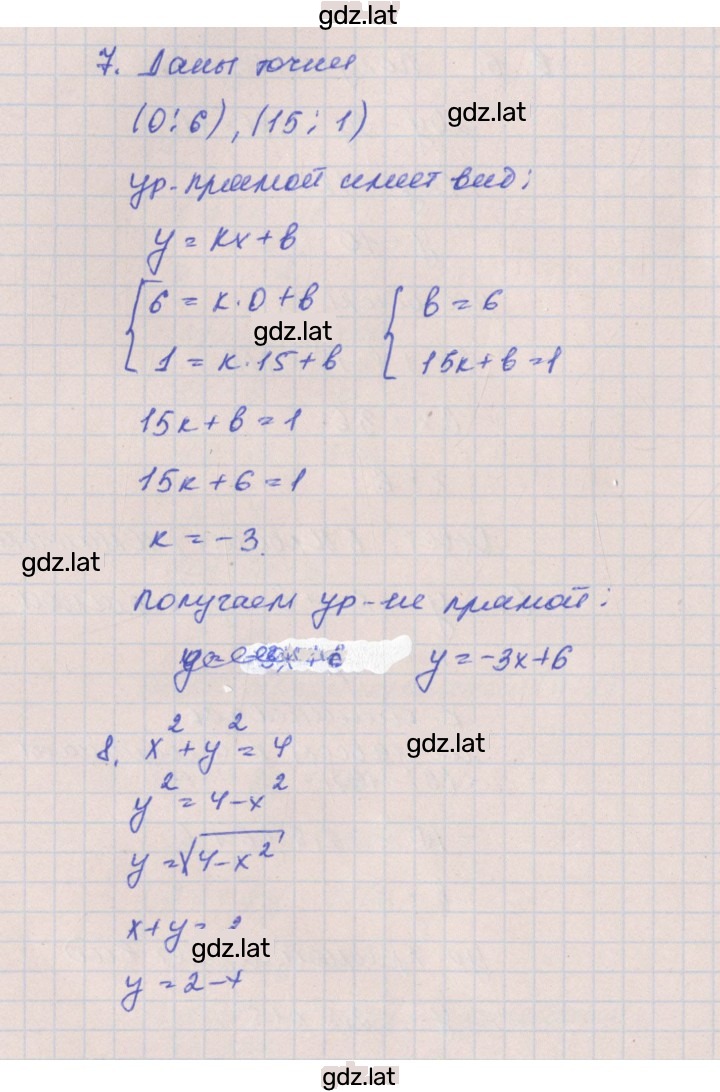 gdz.lat
7. Даны точки
(0; 6), (15; 1)
gdz.lat
ур-прямой имеет вид:
y = kx + b
{ 6 = k·0 + b { b = 6
gdz.lat
1 = k·15 + b 15k + b = 1
15k + b = 1
15k + 6 = 1
k = -3.
gdz.lat
Получаем ур-ие прямой:
y = -3x + 6
8. x² + y² = 4
gdz.lat
y² = 4 - x²
y = √4 - x²
x + y =
gdz.lat
y = 2 - x
gdz.lat